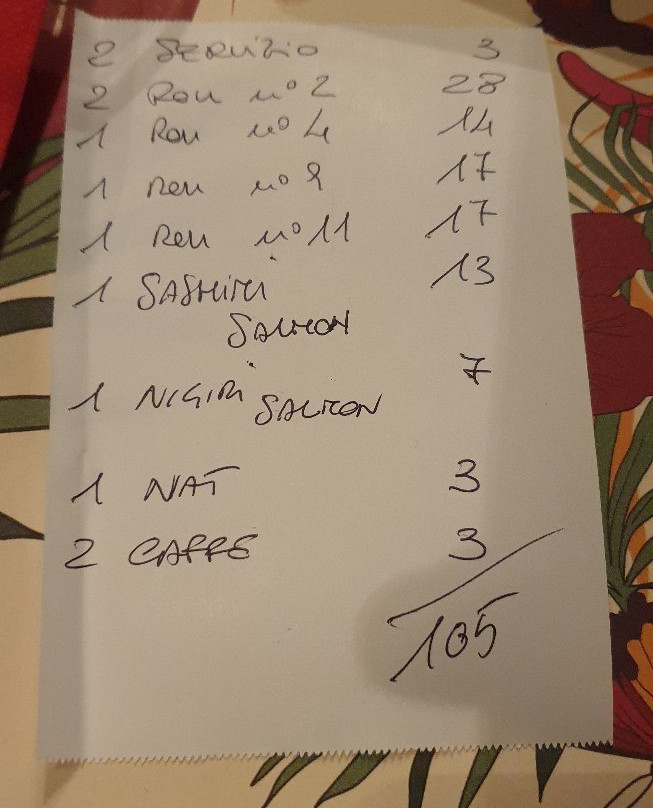 2 SERVIZIO 3
2 ROLL nº 2 28
1 ROLL nº 4 14
1 ROLL nº 9 17
1 ROLL nº 11 17
1 SASHIMI 13
SALMON
1 NIGIRI 7
SALMON
1 NAT 3
2 CAFFE 3
105